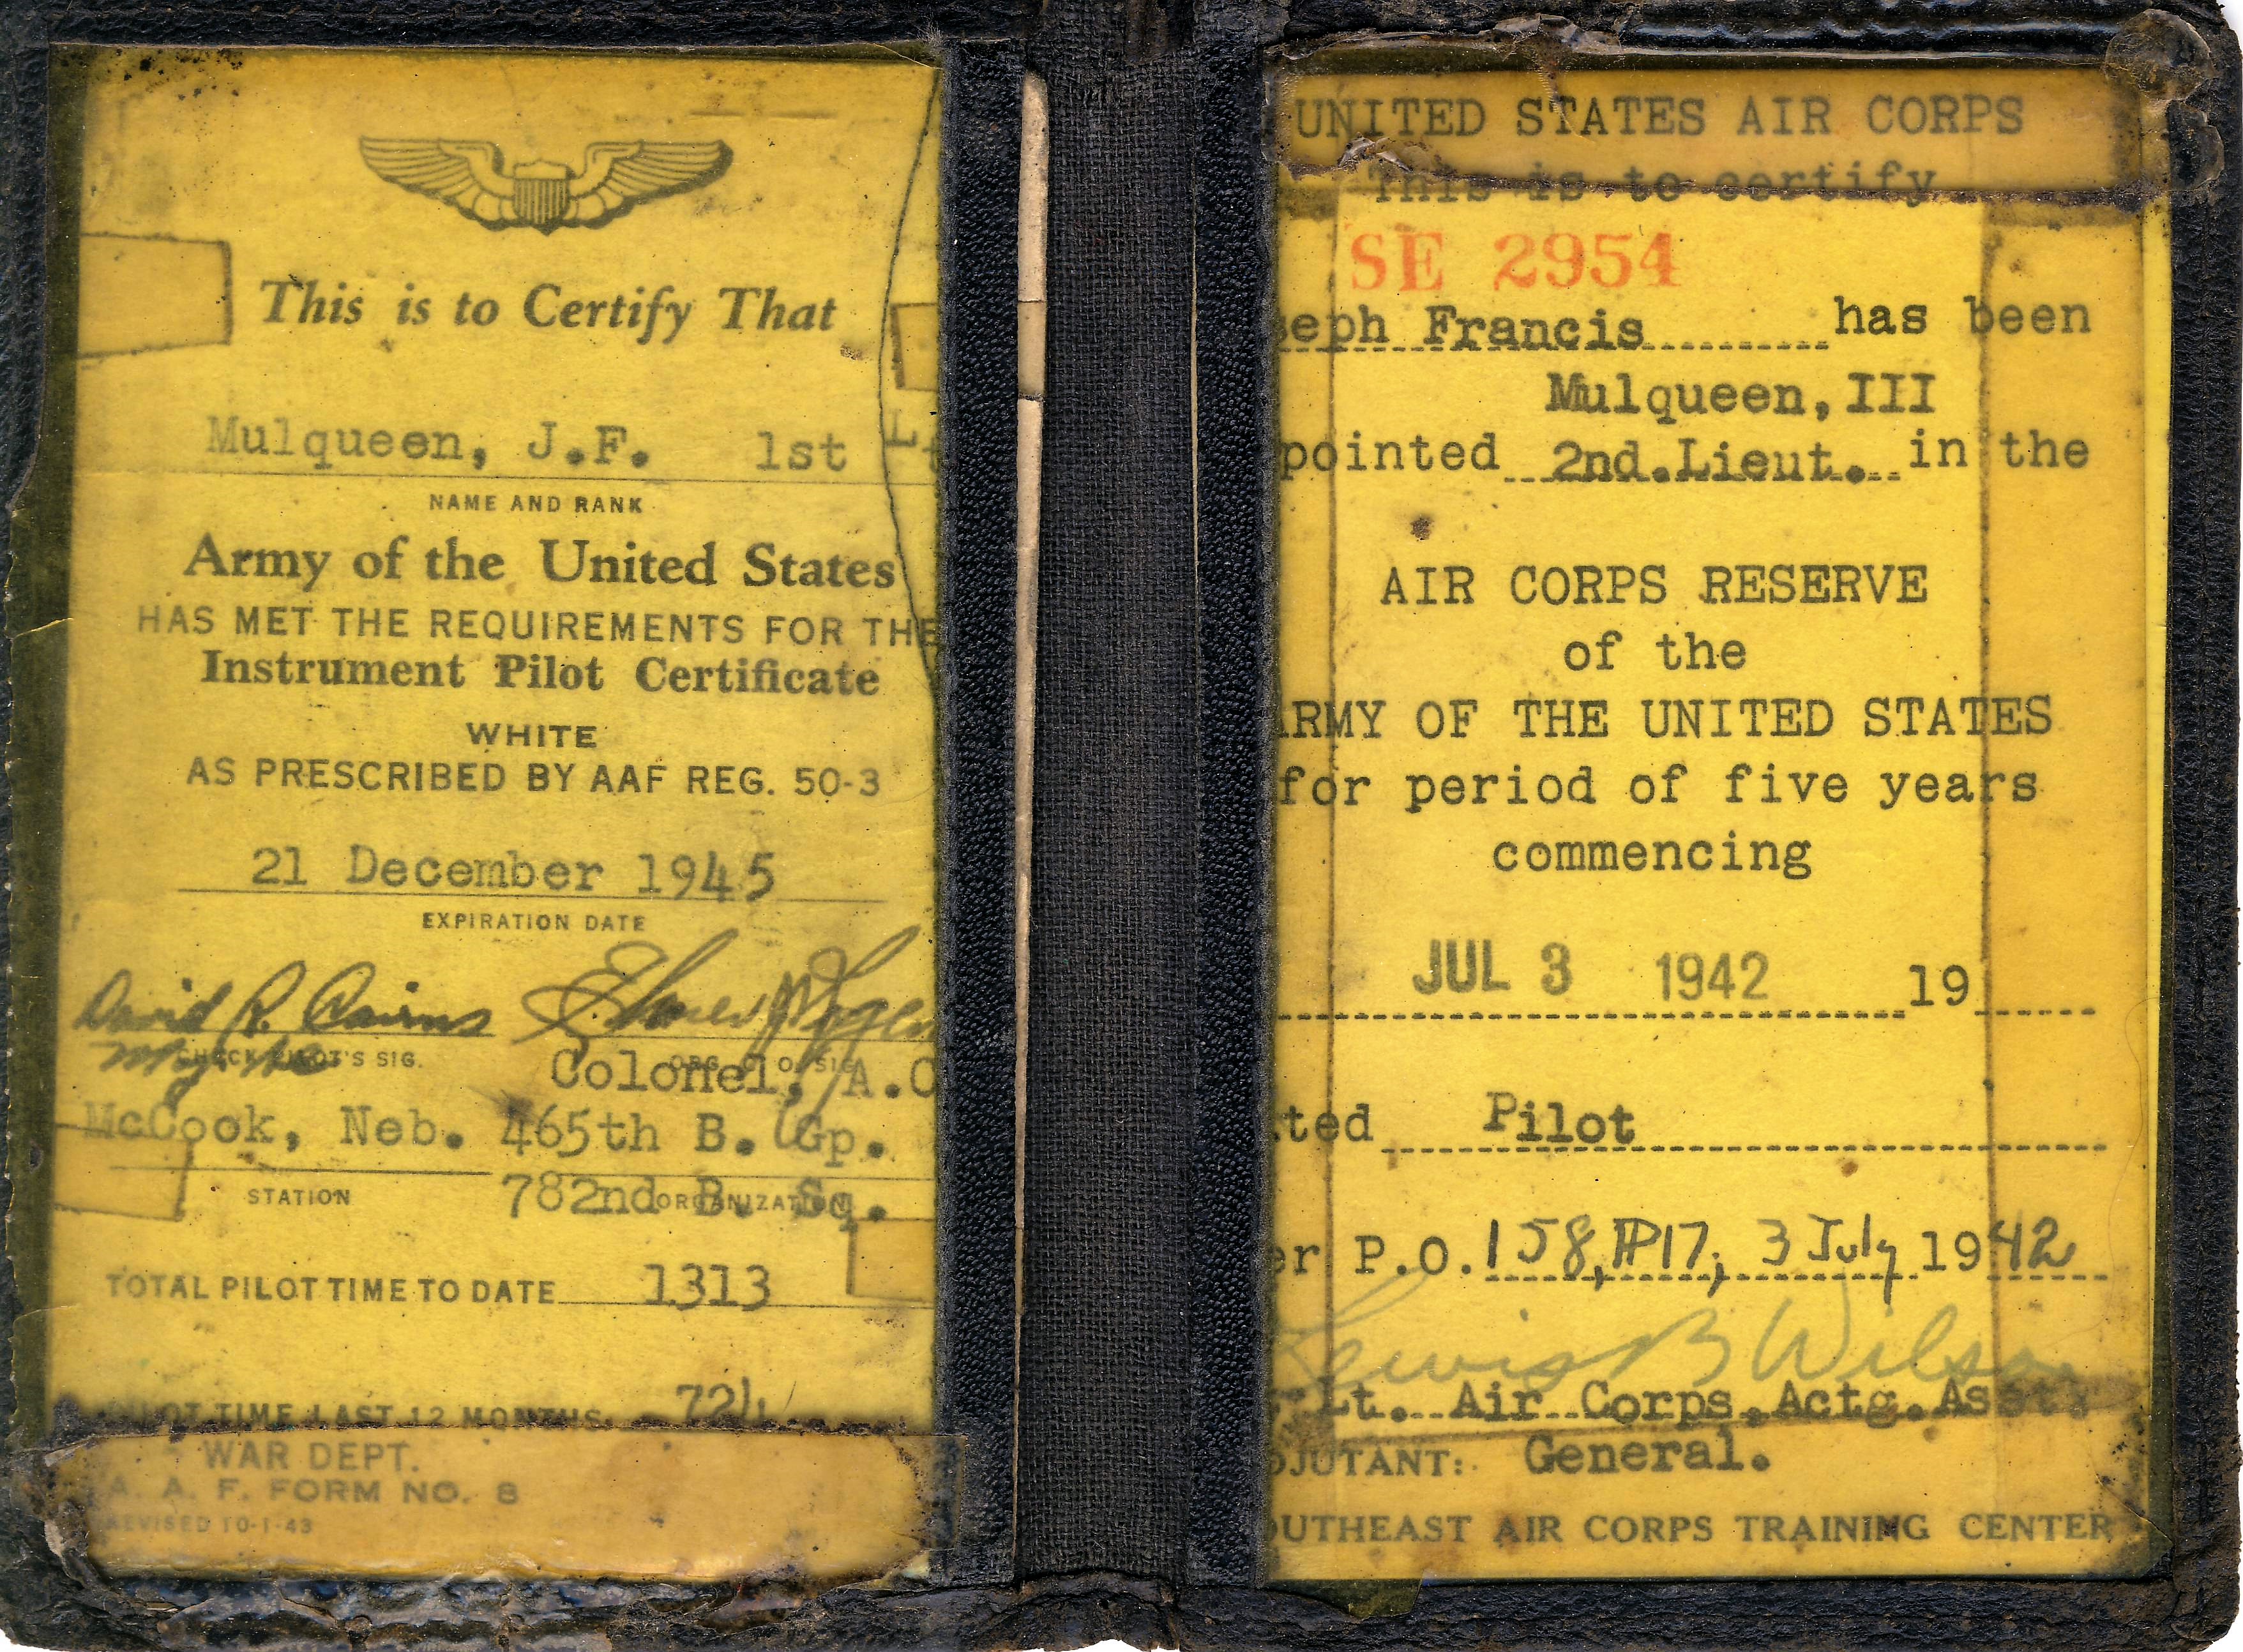 This is to Certify That
Mulqueen, J.F. 1st Lt
NAME AND RANK
Army of the United States
HAS MET THE REQUIREMENTS FOR THE
Instrument Pilot Certificate
WHITE
AS PRESCRIBED BY AAF REG. 50-3
21 December 1945
EXPIRATION DATE
David R. Cairns
CHECK PILOT'S SIG. ORG. C. O. SIG
Colonel, A.C
McCook, Neb. 465th B. Gp.
STATION
782nd B. Sq.
ORGANIZATION
TOTAL PILOT TIME TO DATE 1313
PILOT TIME LAST 12 MONTHS. 724
WAR DEPT.
A. A. F. FORM NO. 8
REVISED 10-1-43
UNITED STATES AIR CORPS
This is to certify
SE 2954
seph Francis has been
Mulqueen, III
pointed 2nd.Lieut. in the
AIR CORPS RESERVE
of the
ARMY OF THE UNITED STATES
for period of five years
commencing
JUL 3 1942 19
ted Pilot
er P.O. 158, PP17, 3 July 1942
Lewis B Wilson
Lt. Air Corps, Actg. Asst.
DJUTANT: General.
OUTHEAST AIR CORPS TRAINING CENTER